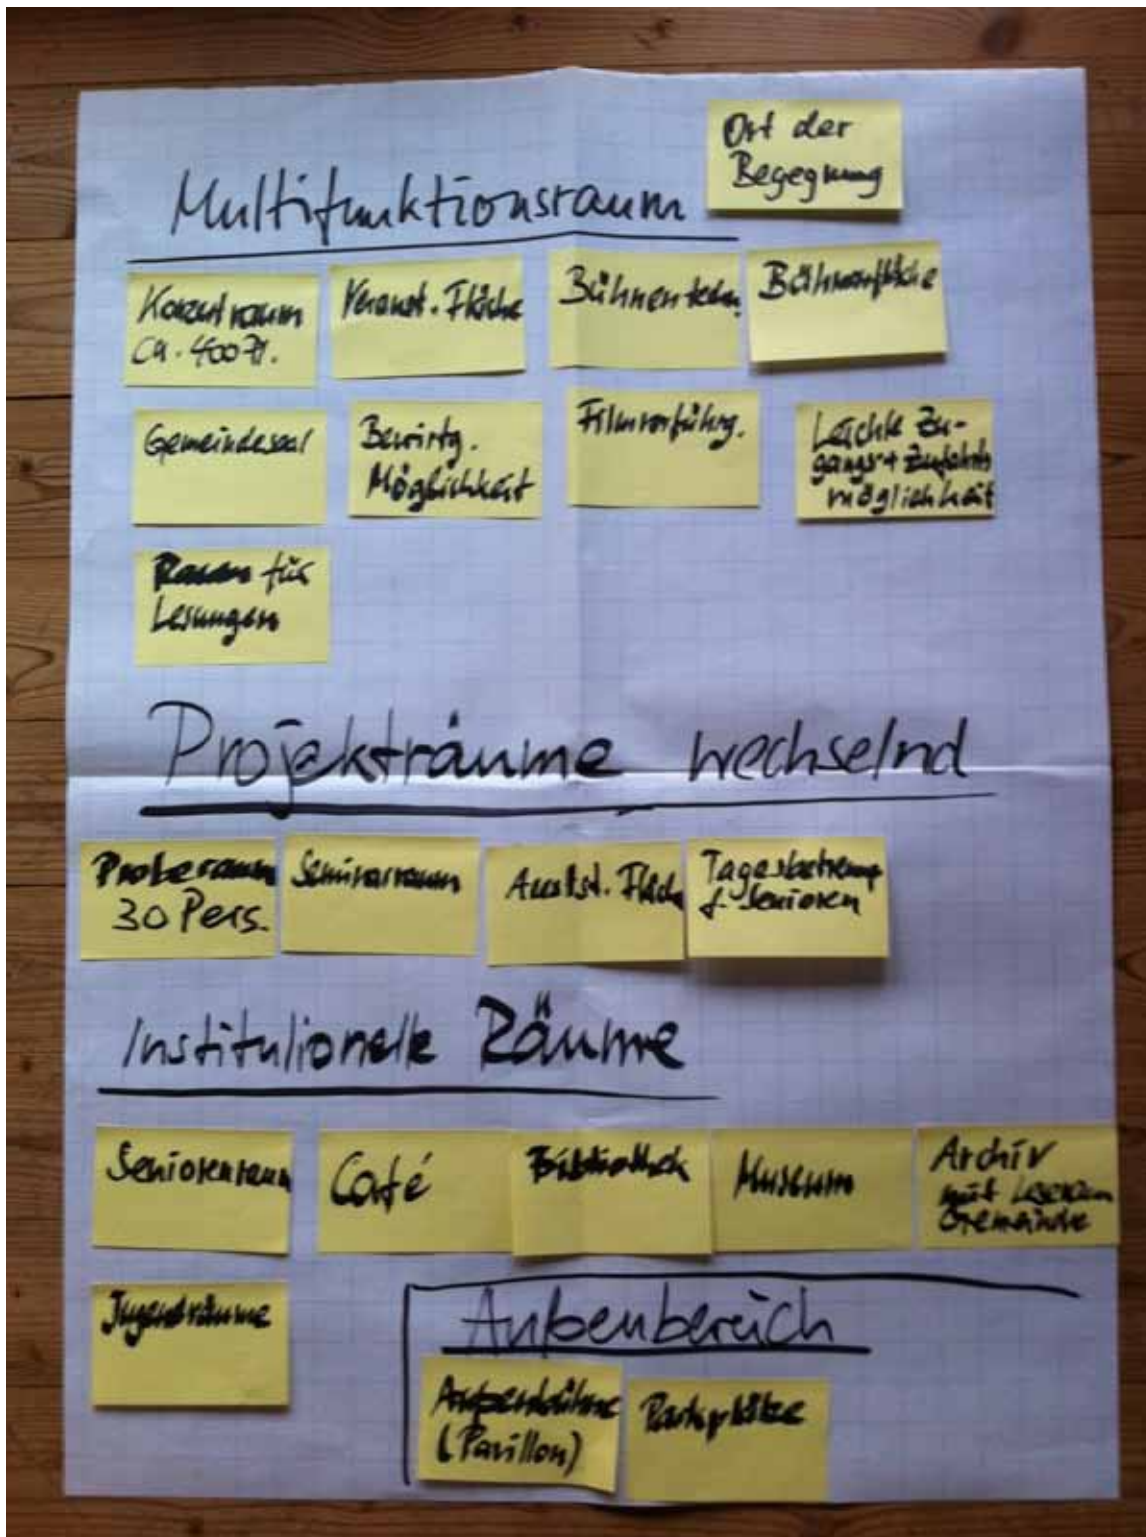 Ort der
Begegnung
Multifunktionsraum
Konzertraum
ca. 400 Pl.
Veranst. Fläche
Bühnentechn.
Bühnenfläche
Gemeindesaal
Bewirtg.
Möglichkeit
Filmvorführg.
Leichte Zu-
gangs + Zufahrts
möglichkeit
Raum für
Lesungen
Projekträume wechselnd
Proberaum
30 Pers.
Seminarraum
Ausst. Fläche
Tagesbetreung
f. Senioren
Institutionelle Räume
Seniorenraum
Café
Bibliothek
Museum
Archiv
mit Leseraum
Gemeinde
Jugendräume
Außenbereich
Außenbühne
(Pavillon)
Parkplätze